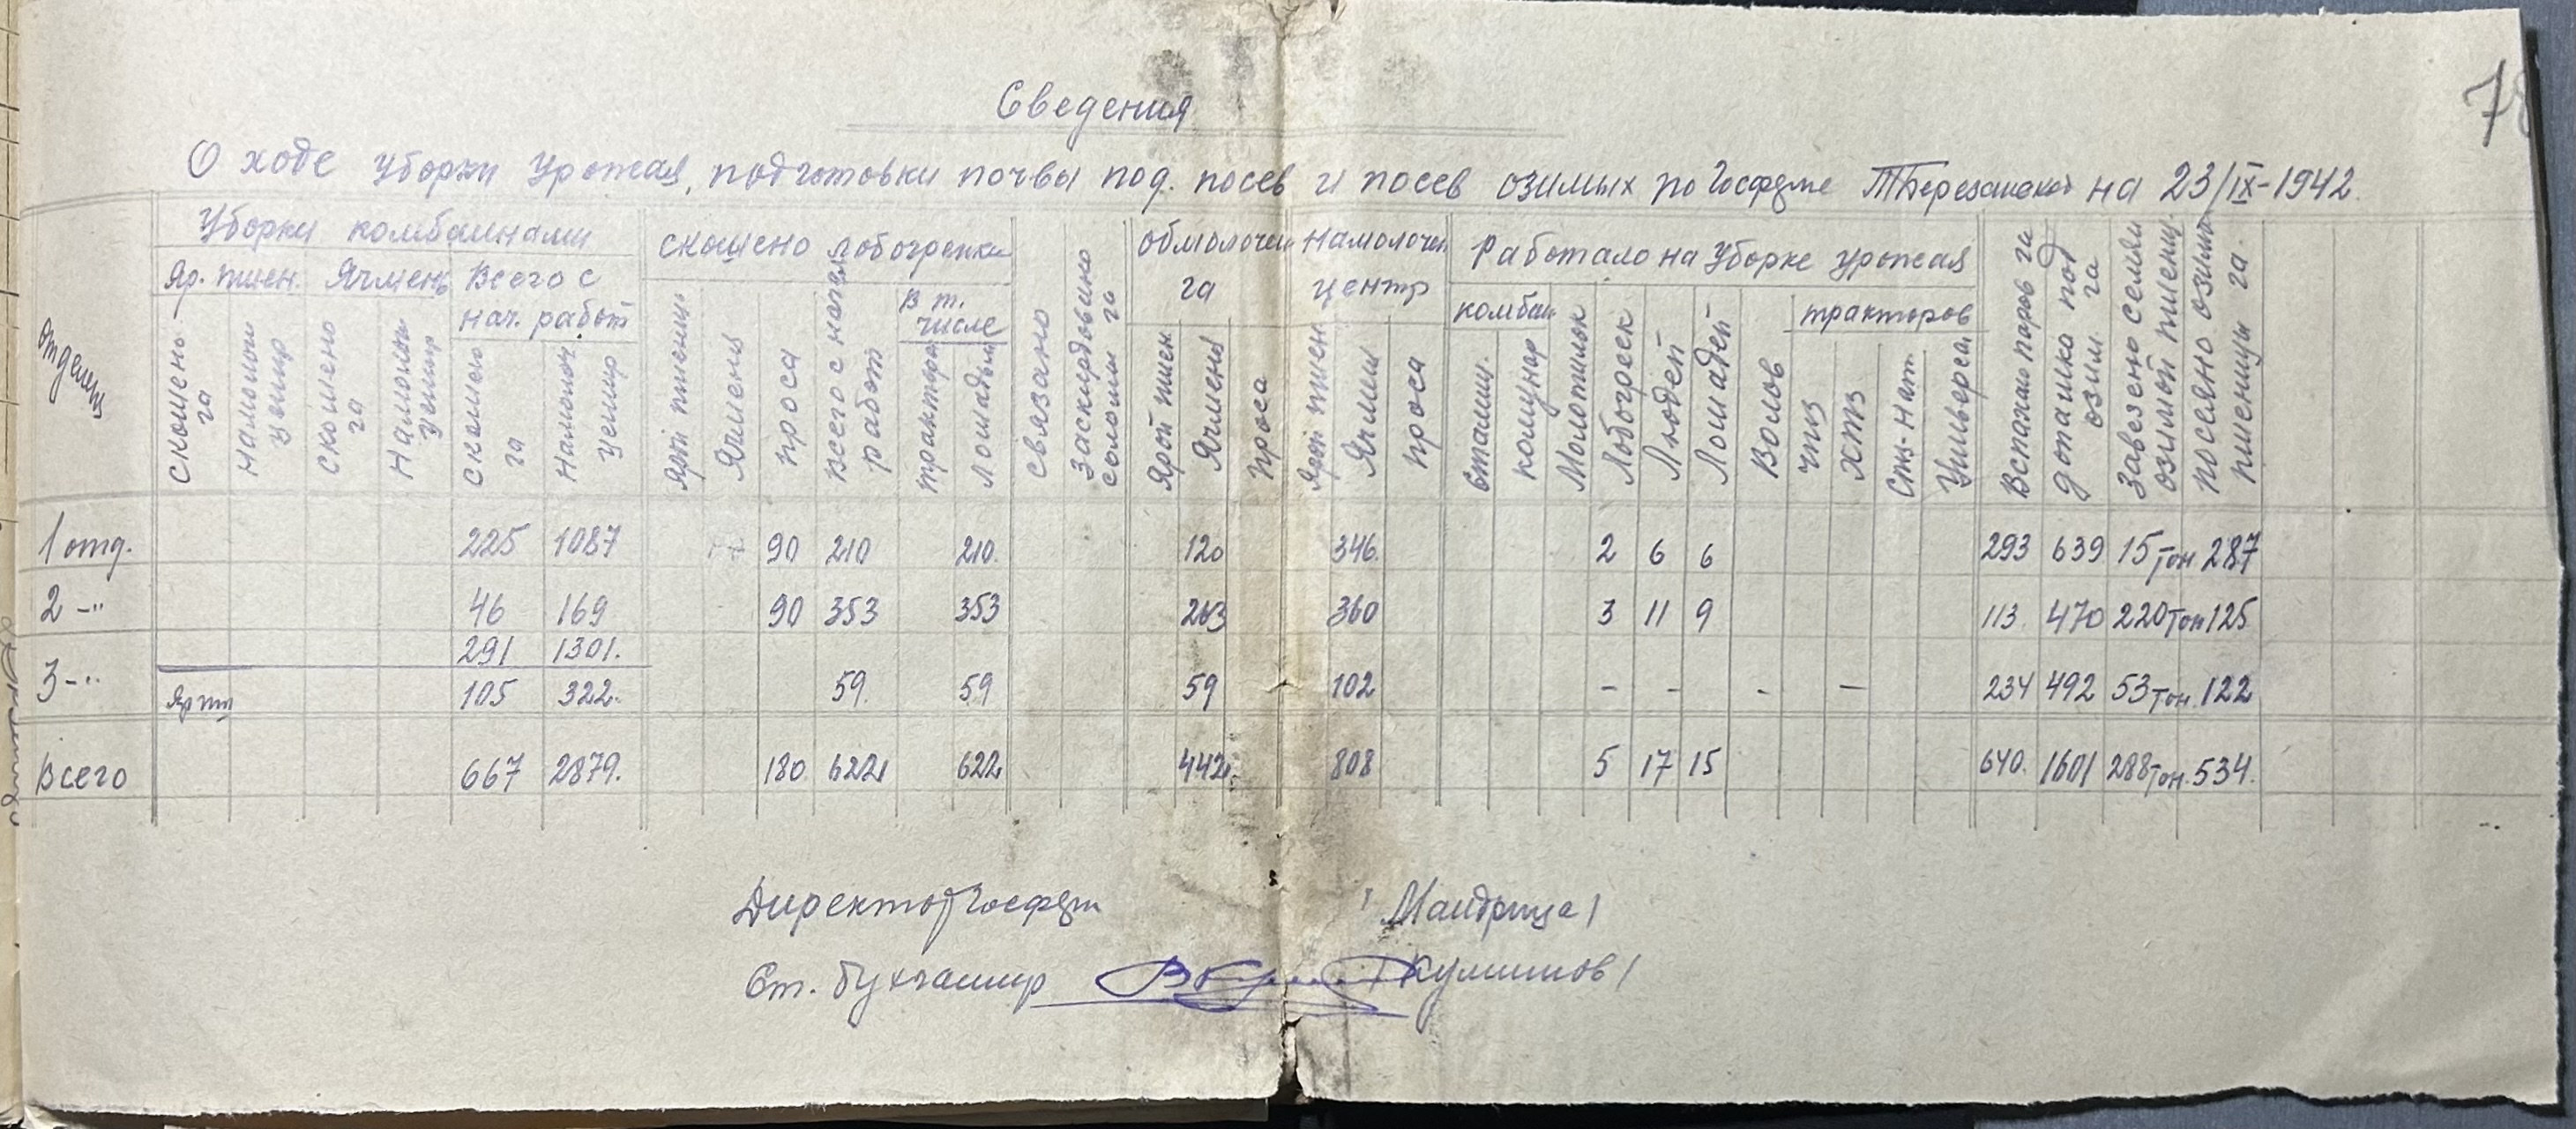 78
Сведения
О ходе уборки урожая, подготовки почвы под. посев и посев озимых по Госферме на 23/IX-1942.
отделен
Уборки комбаинами
Яр. пшен. Ячмень Всего с нач. работ
Скошень га
Намолоч центр
Скошено га
Намолоч центр
Скошено га
Намолоч центр
скошено лобогрейка
Ярой пшениц
Ячменя
проса
Всего с начал работ
в т. числе
трактора
Лошадьм
связано
Заскирдовано соломы га
обмолочен га
Ярой пшен
Ячменя
проса
намолочен центр
Ярой пшен
Ячмен
проса
Работало на уборке урожая
комбаи
Сталин.
комунар
Молотилок
Лобогреек
Людей
Лошадей
Волов
тракторов
чтз
хтз
Стз-нат.
Универсал
Вспахано паров га
допашка под озим. га
Завезено семян озимой пшениц.
посеяно озимой пшеницы га.
1 отд. 225 1087 90 210 210. 120 346. 2 6 6 293 639 15 тон 287
2 -"- 46 169 90 353 353 263 360 3 11 9 113 470 220 тон 125
291 1301.
3 -"- Яр пш 105 322. 59. 59 59 102 - - - - 234 492 53 тон. 122
Всего 667 2879. 180 622 622 442. 808 5 17 15 640. 1601 288 тон. 534.
Директор Госферм /Мандрица/
Ст. бухгалтер /Кулишов/